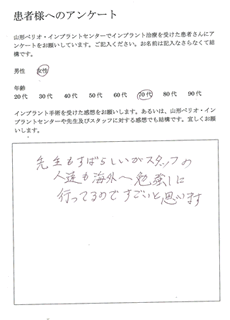 患者様へのアンケート
山形ペリオ・インプラントセンターでインプラント治療を受けた患者さんにア
ンケートをお願いしています。ご記入ください。お名前は記入なさらなくて結
構です。
男性 女性
年齢
20代 30代 40代 50代 60代 70代 80代 90代
インプラント手術を受けた感想をお願いします。あるいは、山形ペリオ・イン
プラントセンターや先生及びスタッフに対する感想でも結構です。宜しくお願
いします。
先生もすばらしいがスタッフの
人達も海外へ勉強しに
行ってるのですごいと思います